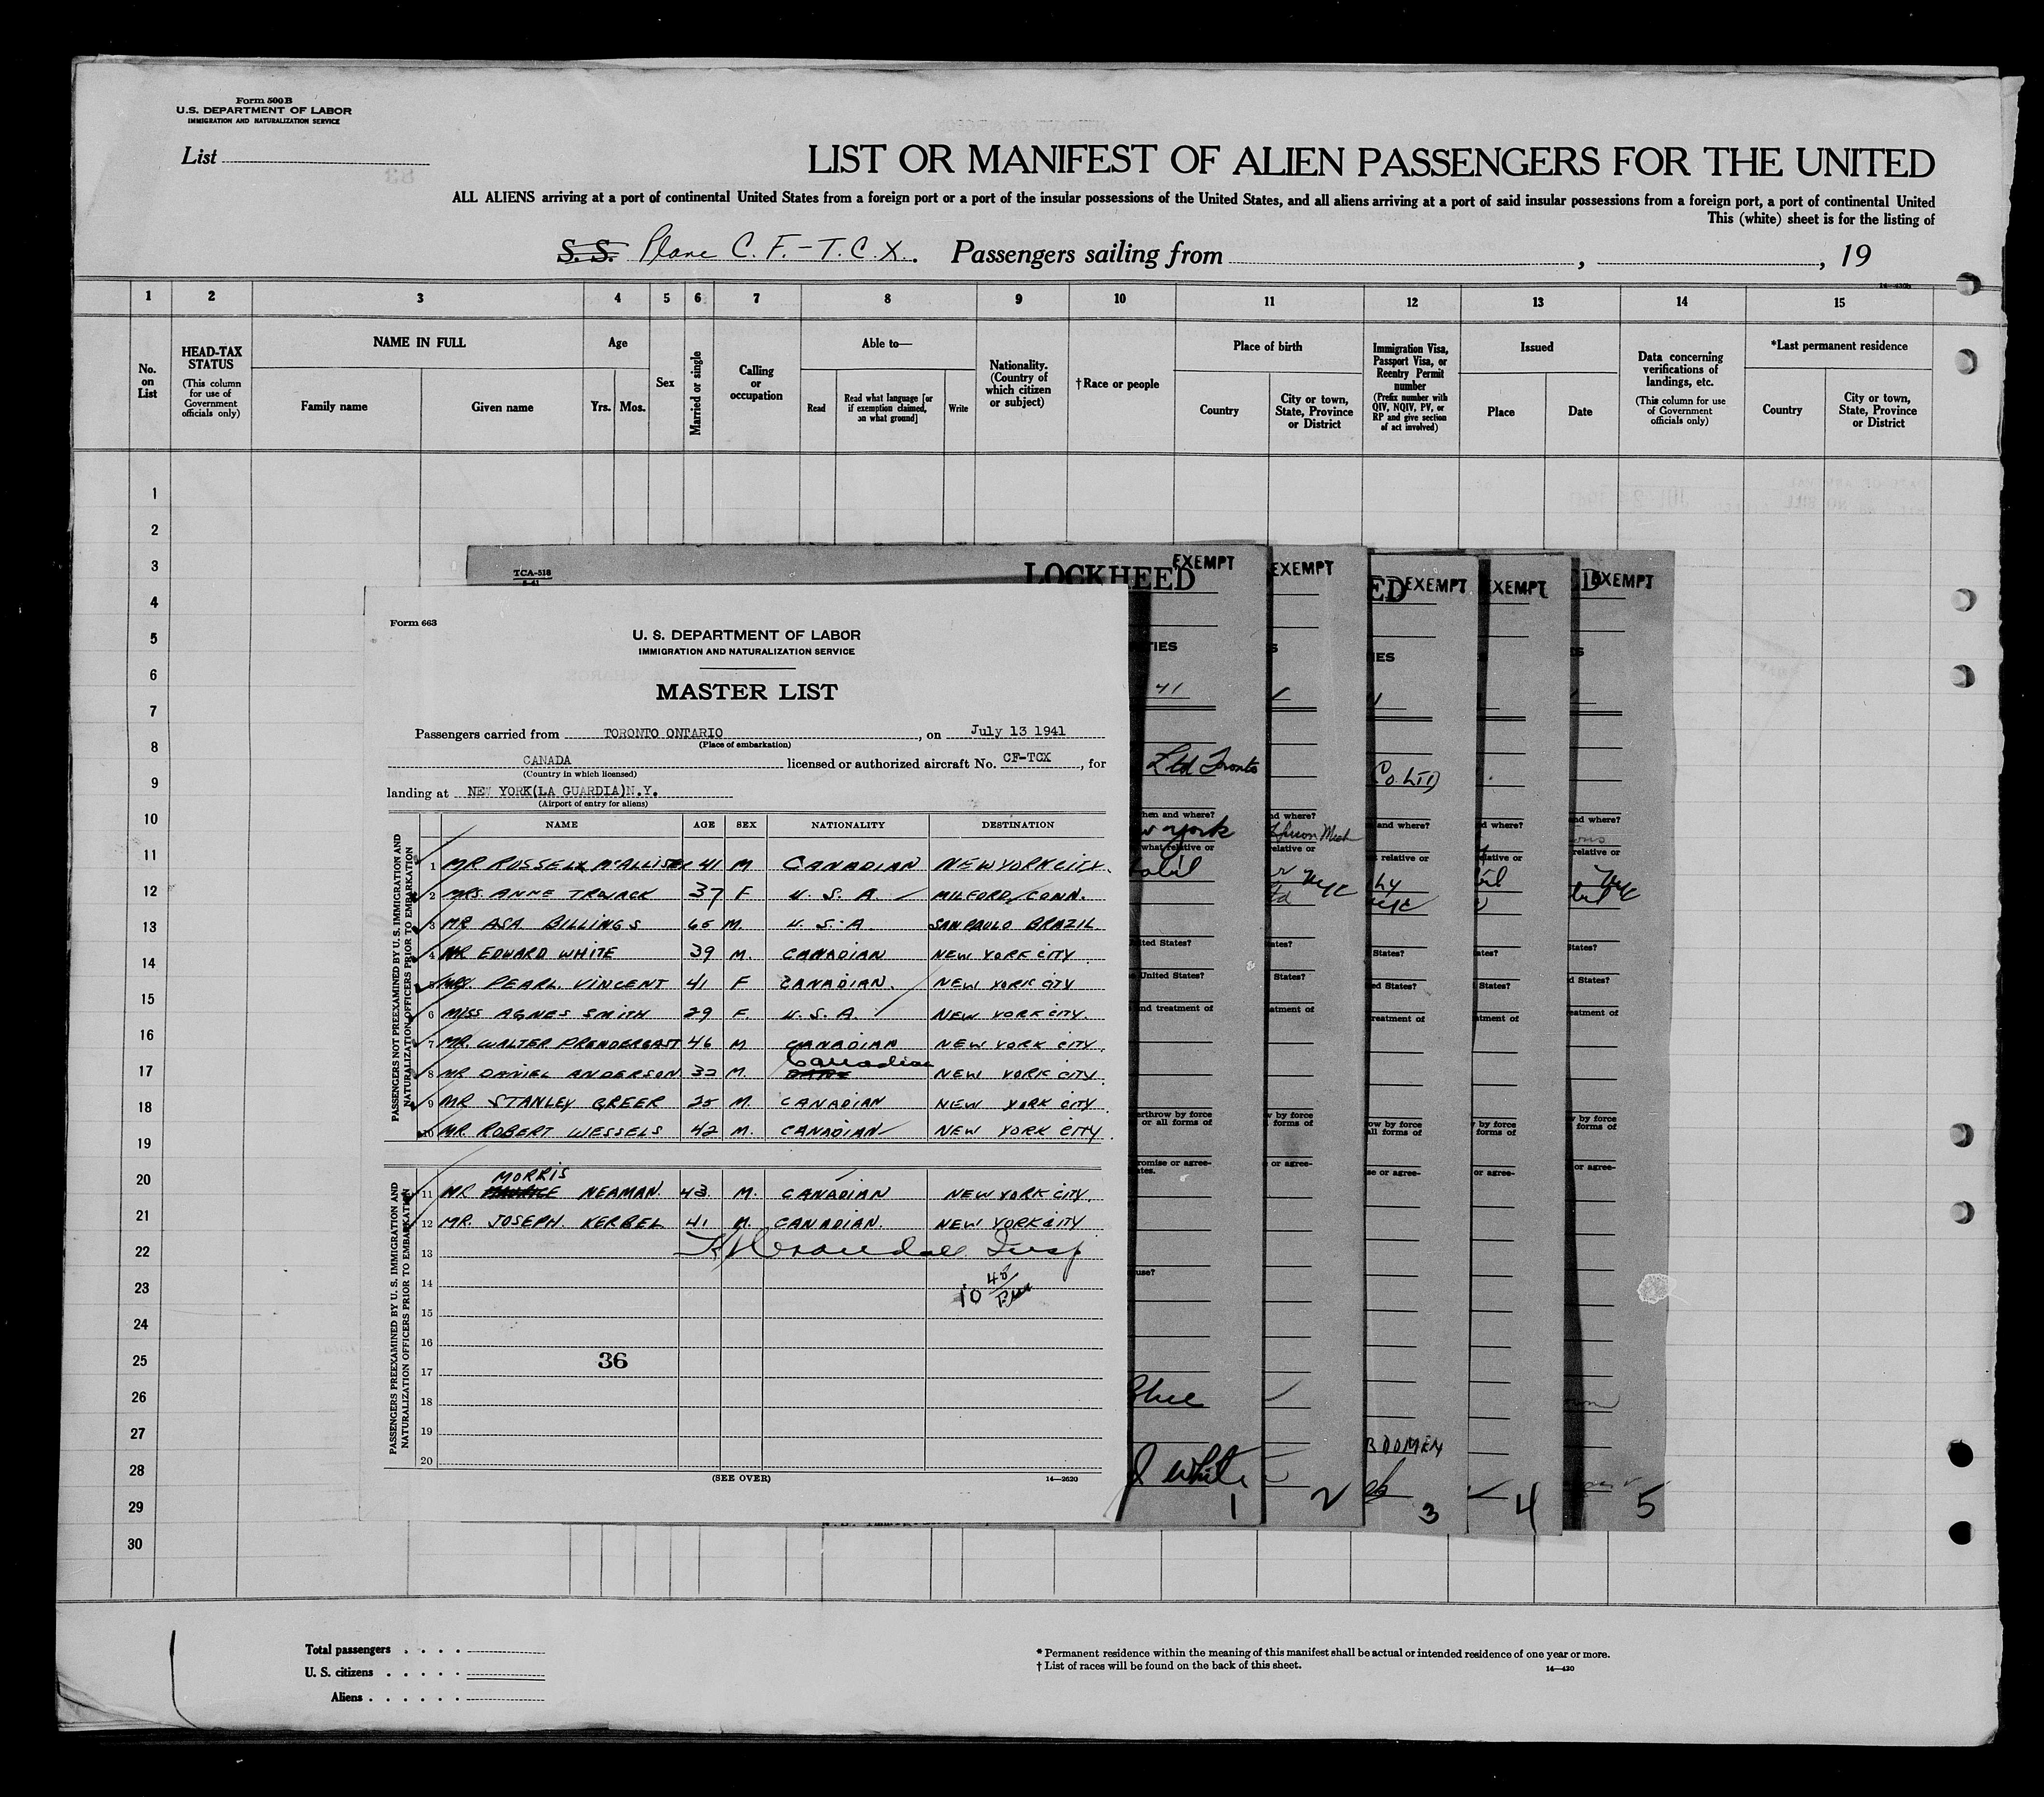 Form 500 B
U.S. DEPARTMENT OF LABOR
IMMIGRATION AND NATURALIZATION SERVICE
List
LIST OR MANIFEST OF ALIEN PASSENGERS FOR THE UNITED
ALL ALIENS arriving at a port of continental United States from a foreign port or a port of the insular possessions of the United States, and all aliens arriving at a port of said insular possessions from a foreign port, a port of continental United
This (white) sheet is for the listing of
S. S. Plane C. F.-T.C.X. Passengers sailing from , , 19
1 2 3 4 5 6 7 8 9 10 11 12 13 14 15
No. on List
HEAD-TAX STATUS
(This column for use of Government officials only)
NAME IN FULL
Family name
Given name
Age
Yrs. Mos.
Sex
Married or single
Calling or occupation
Able to—
Read
Read what language [or if exemption claimed, on what ground]
Write
Nationality. (Country of which citizen or subject)
†Race or people
Place of birth
Country
City or town, State, Province or District
Immigration Visa, Passport Visa, or Reentry Permit number
(Prefix number with QIV, NQIV, PV, or RP and give section of act involved)
Issued
Place
Date
Data concerning verifications of landings, etc.
(This column for use of Government officials only)
*Last permanent residence
Country
City or town, State, Province or District
1
2
3
4
5
6
7
8
9
10
11
12
13
14
15
16
17
18
19
20
21
22
23
24
25
26
27
28
29
30
TCA-518
LOCKHEED
EXEMPT
EXEMPT
EXEMPT
EXEMPT
EXEMPT
Form 663
U. S. DEPARTMENT OF LABOR
IMMIGRATION AND NATURALIZATION SERVICE
MASTER LIST
Passengers carried from TORONTO ONTARIO, on July 13 1941
(Place of embarkation)
CANADA licensed or authorized aircraft No. CF-TCX, for
(Country in which licensed)
landing at NEW YORK(LA GUARDIA)N.Y.
(Airport of entry for aliens)
NAME AGE SEX NATIONALITY DESTINATION
PASSENGERS NOT PREEXAMINED BY U. S. IMMIGRATION AND NATURALIZATION OFFICERS PRIOR TO EMBARKATION
1 MR RUSSELL McALLISTER 41 M CANADIAN NEW YORK CITY.
2 MRS. ANNE TROJACK 37 F U. S. A. MILFORD, CONN.
3 MR ASA BILLINGS 65 M. U. S. A. SAN PAULO BRAZIL.
4 MR EDWARD WHITE 39 M. CANADIAN NEW YORK CITY.
5 MRS. PEARL VINCENT 41 F CANADIAN. NEW YORK CITY
6 MISS AGNES SMITH 29 F. U. S. A. NEW YORK CITY.
7 MR. WALTER PRENDERGAST 46 M CANADIAN NEW YORK CITY.
8 MR DANIEL ANDERSON 32 M. Canadian NEW YORK CITY.
9 MR STANLEY GREER 25 M. CANADIAN NEW YORK CITY.
10 MR. ROBERT WESSELS 42 M. CANADIAN NEW YORK CITY.
PASSENGERS PREEXAMINED BY U. S. IMMIGRATION AND NATURALIZATION OFFICERS PRIOR TO EMBARKATION
MORRIS
11 MR MAURICE NEAMAN. 43. M. CANADIAN NEW YORK CITY.
12 MR. JOSEPH. KERBEL 41 M. CANADIAN. NEW YORK CITY
13 Insp
14
10 40
15
16
36
17
18
19
20
(SEE OVER)
14—2620
41
Ltd Toronto
Co. LTD
then and where?
and where?
and where?
and where?
and where?
New York
Mich
what relative or
relative or
relative or
relative or
relative or
NYC
United States?
States?
States?
States?
United States?
States?
States?
States?
and treatment of
treatment of
treatment of
treatment of
treatment of
overthrow by force
or all forms of
by force
forms of
by force
all forms of
by force
forms of
by force
forms of
promise or agree-
or agree-
or agree-
or agree-
or agree-
White
1
2
3
4
5
Total passengers
U. S. citizens
Aliens
* Permanent residence within the meaning of this manifest shall be actual or intended residence of one year or more.
† List of races will be found on the back of this sheet.
14—430